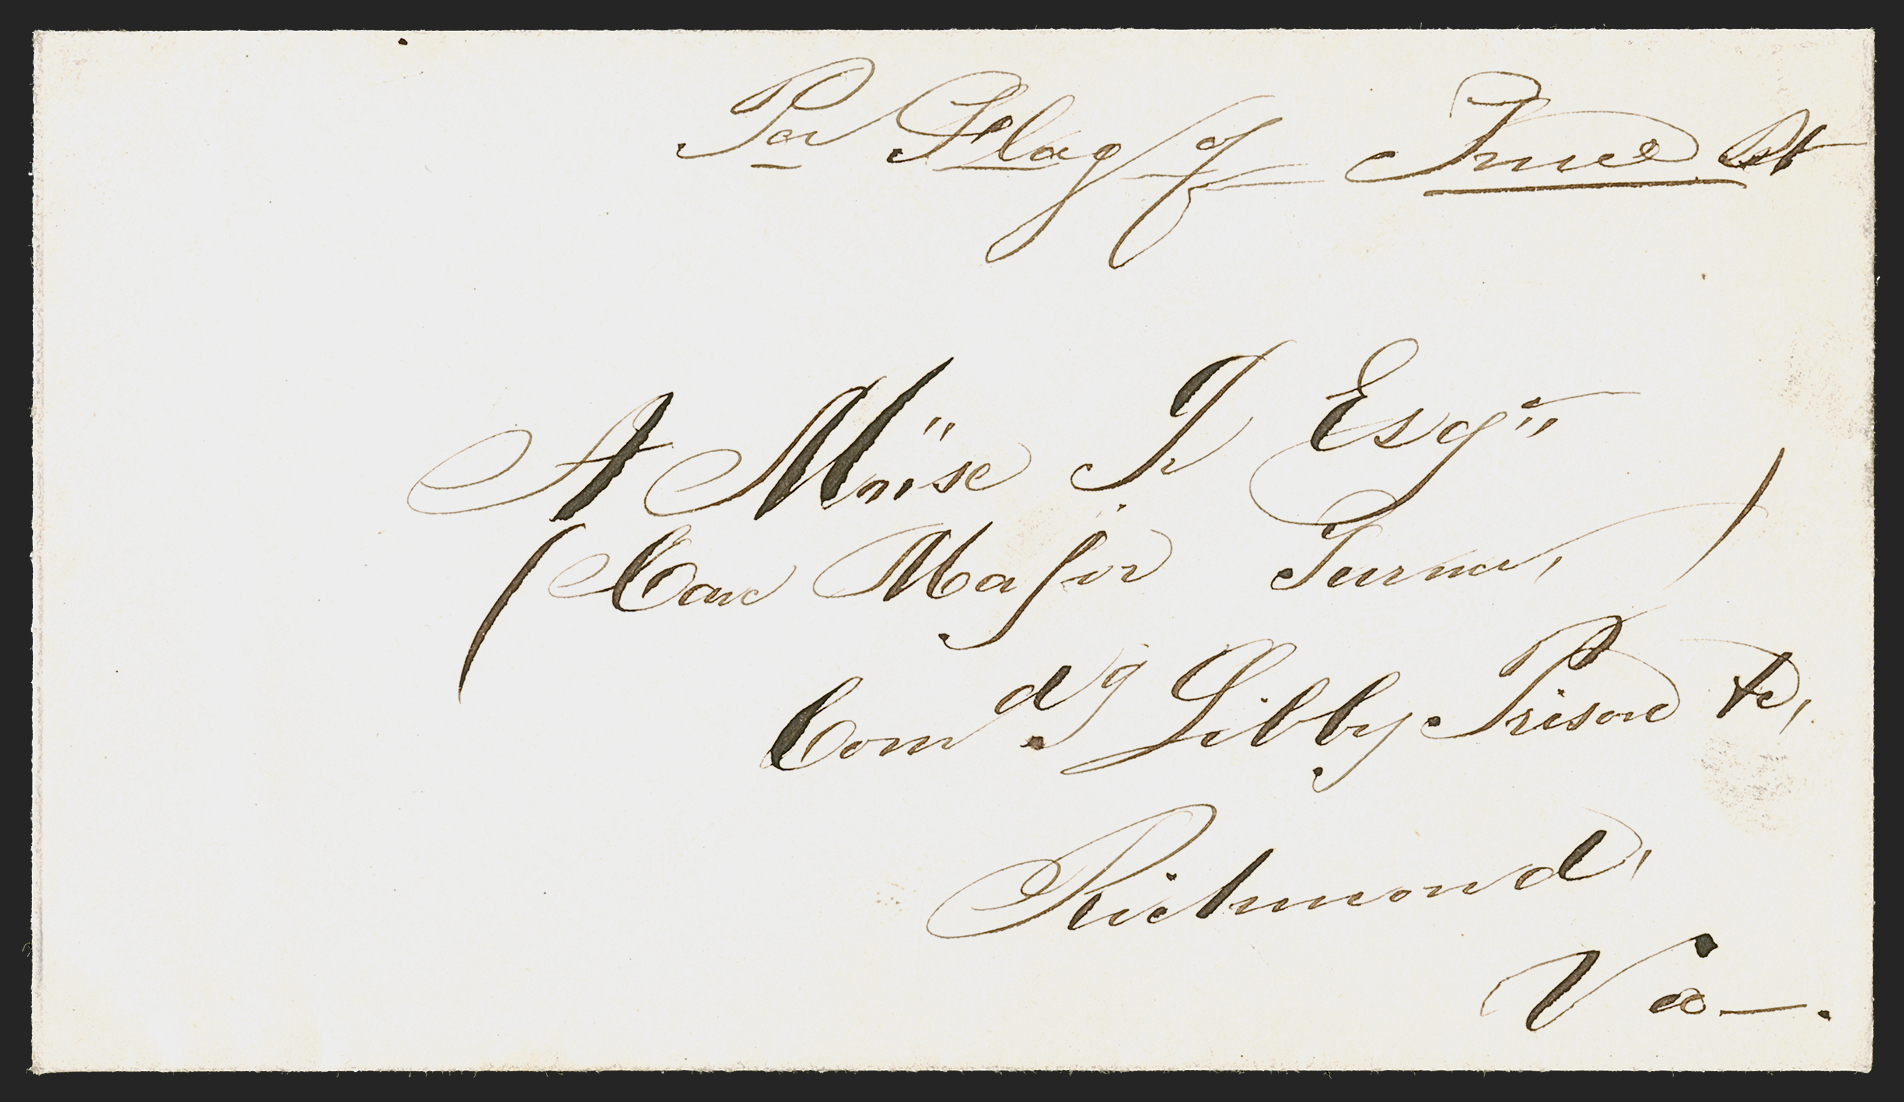 Per Flag of Truce Bt
A Moïse Jr Esqr
(Care Major Turner,)
Comdg Libby Prison &c,
Richmond,
Va—.